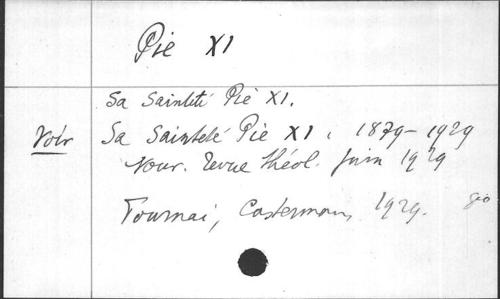 Pie XI
Sa Sainteté Pie XI.
Voir Sa Sainteté Pie XI, 1879-1929
Nouv. Revue théol. Juin 1929
Tournai, Casterman, 1929. 8o